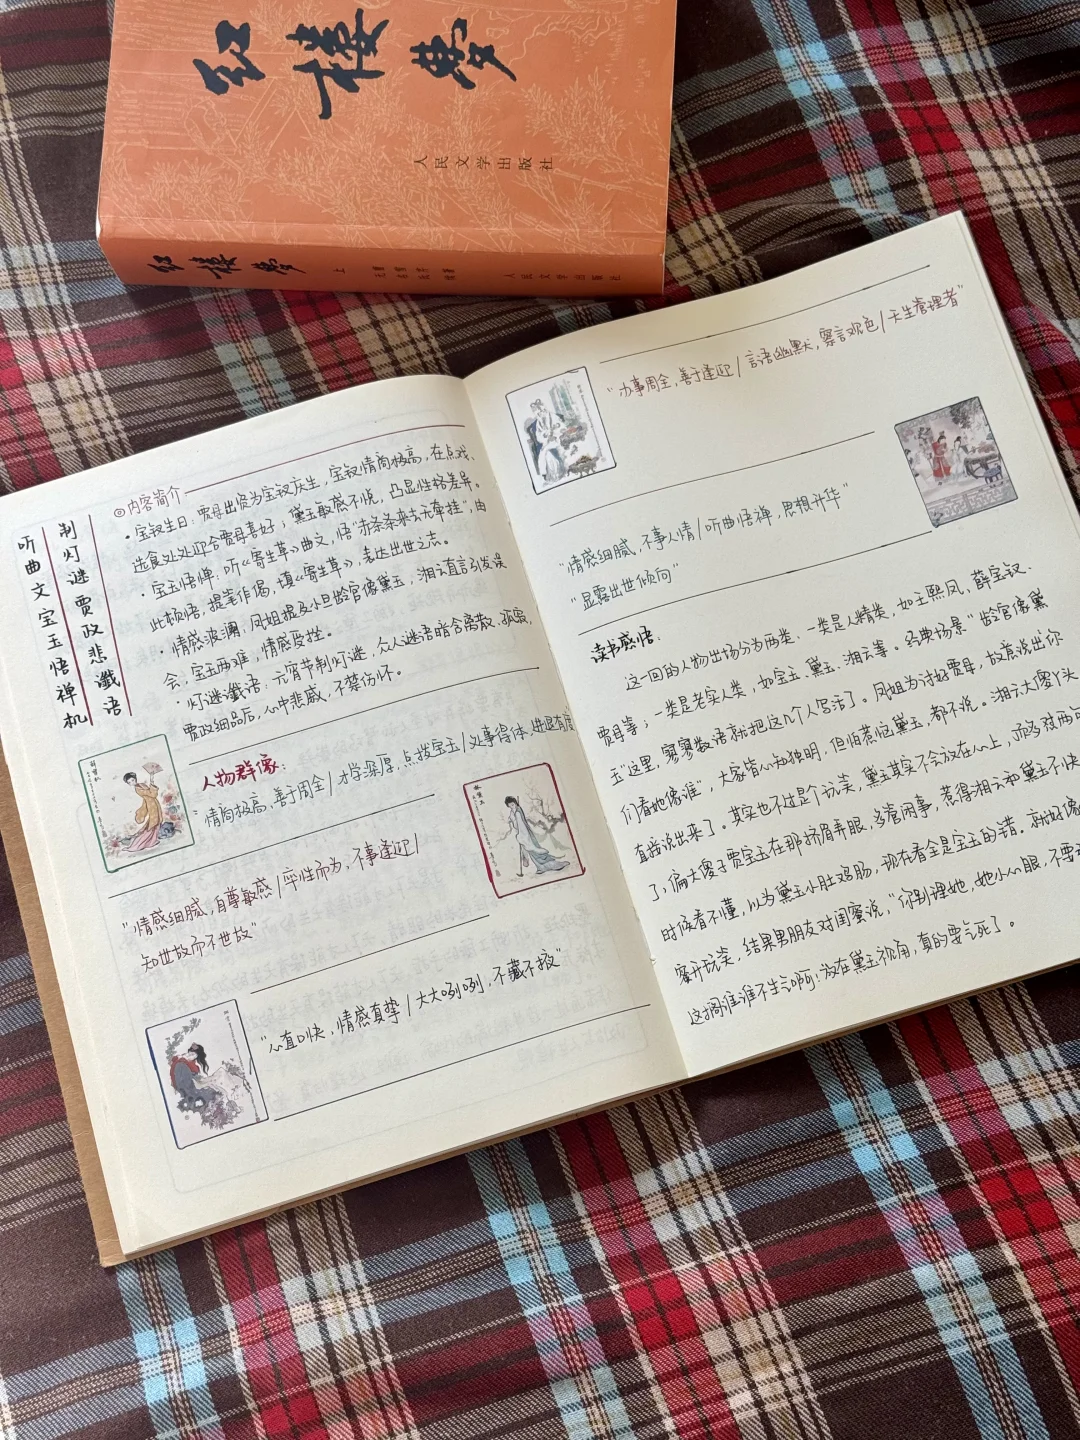 红楼梦
人民文学出版社
红楼梦 上 人民文学出版社
听曲文宝玉悟禅机
制灯谜贾政悲谶语
◎内容简介
·宝钗生日:贾母出资为宝钗庆生,宝钗情商极高,在点戏、
选食处处迎合贾母喜好;黛玉敏感不悦,凸显性格差异。
·宝玉悟禅:听《寄生草》曲文,悟“赤条条来去无牵挂”,由
此顿悟,提笔作偈,填《寄生草》,表达出世之志。
·情感波澜:凤姐提及小旦龄官像黛玉,湘云直言引发误
会,宝玉两难,情感受挫。
·灯谜谶语:元宵节制灯谜,众人谜语暗含离散、孤寂,
贾政细品后,心中悲戚,不禁伤怀。
人物群像:
“情商极高,善于周全/才学深厚,点拨宝玉/处事得体,进退有度
“情感细腻,自尊敏感/率性而为,不事逢迎/
知世故而不世故”
“心直口快,情感真挚/大大咧咧,不藏不掖”
“办事周全,善于逢迎/言语幽默,察言观色/天生管理者”
“情感细腻,不事人情/听曲悟禅,思想升华”
“显露出世倾向”
读书感悟:
这一回的人物出场分为两类:一类是人精类,如王熙凤、薛宝钗、
贾母等;一类是老实人类,如宝玉、黛玉、湘云等。经典场景“龄官像黛
玉”这里,寥寥数语就把这几个人写活了。凤姐为讨好贾母,故意说出“你
们看她像谁”,大家皆心知独明,但怕惹恼黛玉,都不说。湘云大傻丫头
直接说出来了。其实也不过是个玩笑,黛玉其实不会放在心上,
了,偏大傻子贾宝玉在那挤眉弄眼,多管闲事,惹得湘云和黛玉不快
时候看不懂,以为黛玉小肚鸡肠,现在看全是宝玉的错。就好像
蜜开玩笑,结果男朋友对闺蜜说,“你别理她,她小心眼,不要
这搁谁谁不生气啊!放在黛玉视角,真的要气死了。